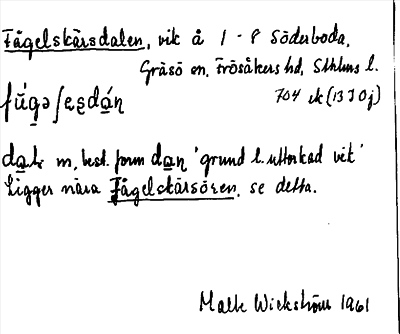 Fågelskärsdalen, vik å 1-8 Söderboda,
Gräsö sn, Frösåkers hd, Sthlms l.
704 ek (13I0j)
m, best. form dan 'grund l. uttorkad vik'
Ligger nära Fågelskärsören, se detta.
Wickström 1961